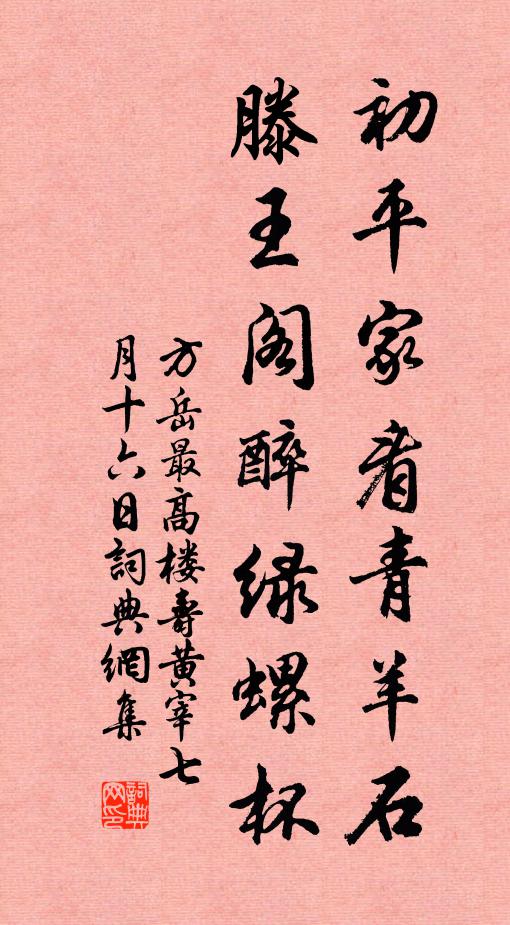 初平家看青羊石
滕王阁醉绿螺杯
方岳最高楼壽黄宰七
月十六日詞典網集
詞典网印